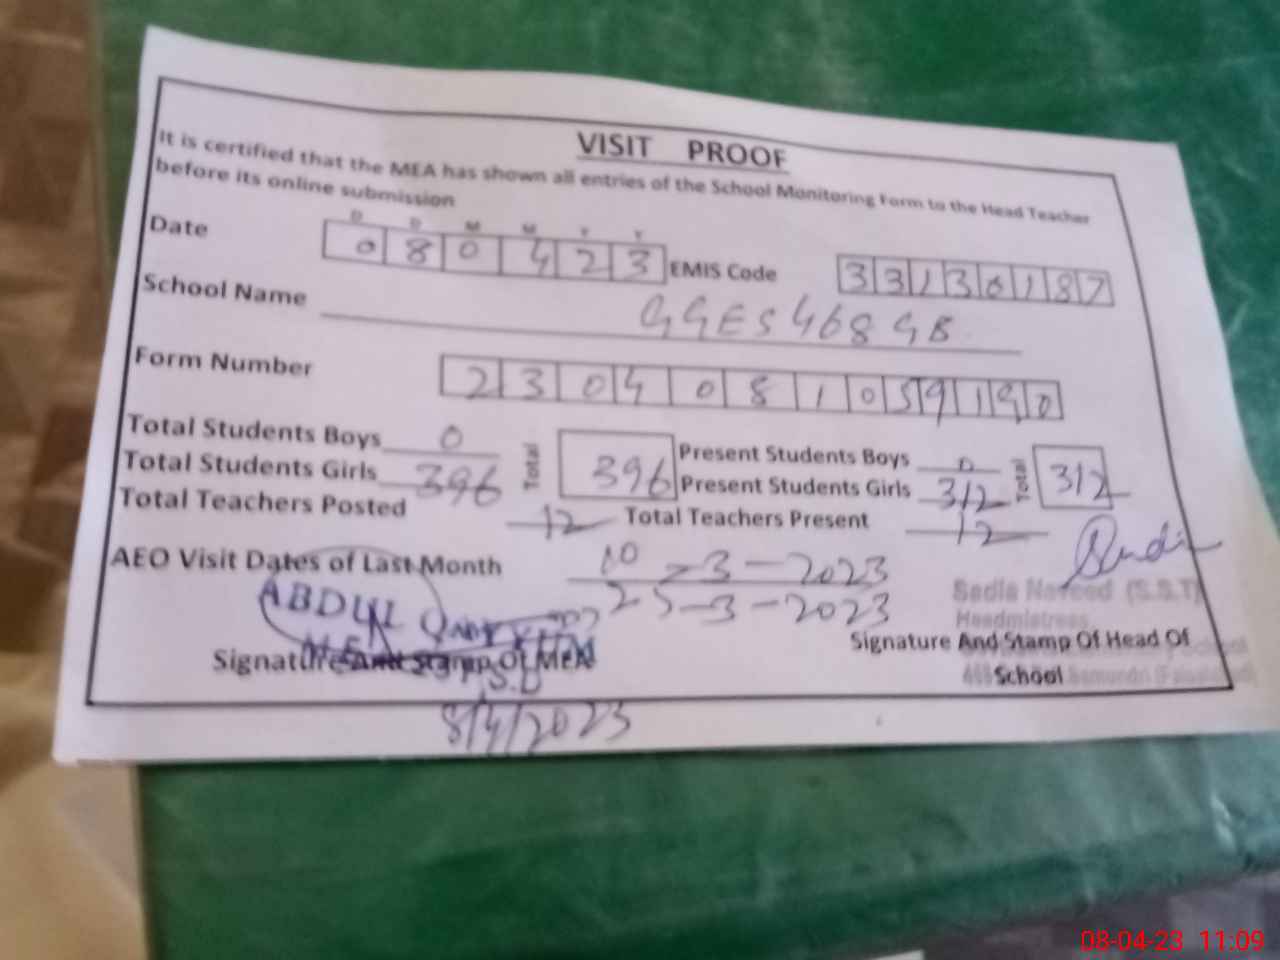 VISIT PROOF
It is certified that the MEA has shown all entries of the School Monitoring Form to the Head Teacher
before its online submission
D D M M Y Y
Date 0 8 0 4 2 3 EMIS Code 3 3 1 3 0 1 8 7
School Name GGES 468 GB
Form Number 2 3 0 4 0 8 1 0 5 9 1 9 0
Total Students Boys 0 Total 396 Present Students Boys 0 Total 312
Total Students Girls 396 Present Students Girls 312
Total Teachers Posted 12 Total Teachers Present 12
AEO Visit Dates of Last Month 10-3-2023
25-3-2023
Sadia Naveed (S.S.T)
Headmistress
ABDUL
Signature And Stamp Of Head Of
School
Signature And Stamp Of MEA
8/4/2023
08-04-23 11:09